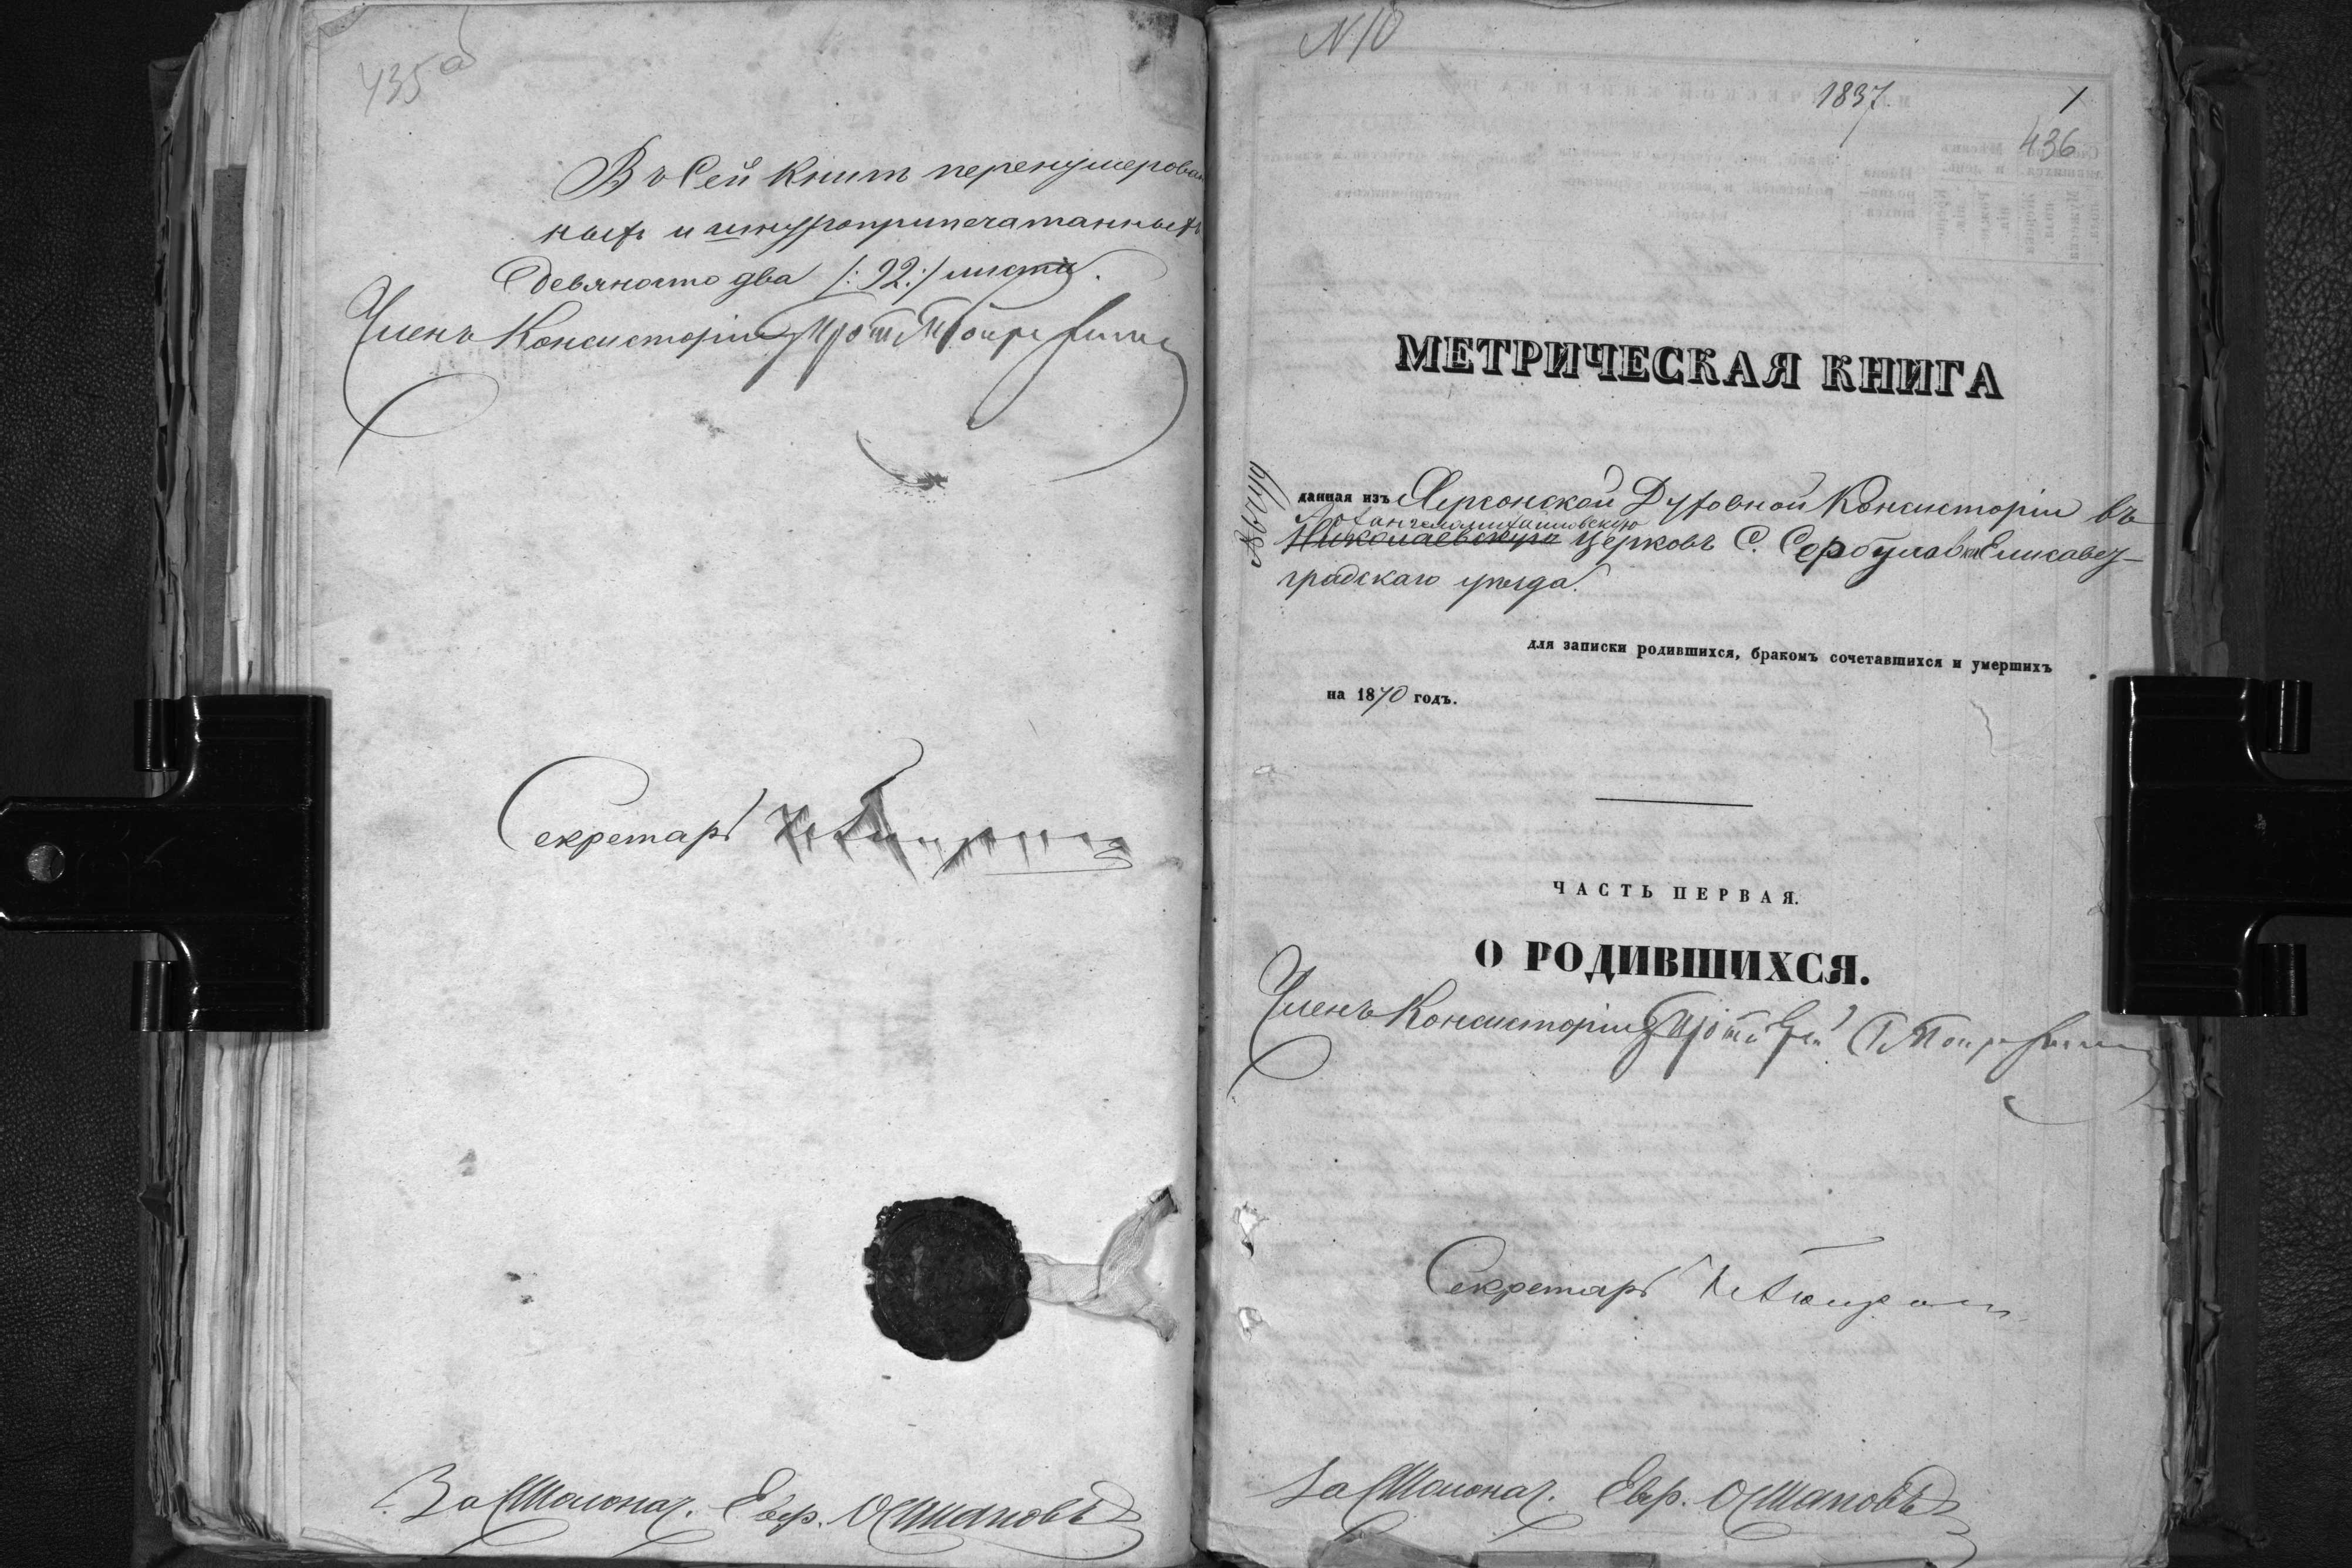 435 об
Въ сей книгѣ перенумерован
ныхъ и шнуроприпечатанныхъ
девяносто два /:92:/ листа.
Членъ Консисторіи Прот.
Секретарь
За Столонач. Евр. Осташовъ
N 10
1837.
1
436
МЕТРИЧЕСКАЯ КНИГА
данная изъ Херсонской Духовной Консисторіи въ
Архангеломихайловскую
Николаевскую церковь С. Сербуловки Елисавет-
градскаго уѣзда.
для записки родившихся, бракомъ сочетавшихся и умершихъ
на 1870 годъ.
ЧАСТЬ ПЕРВАЯ.
О РОДИВШИХСЯ.
Членъ Консисторіи Протоіерей
Секретарь
За Столонач. Евр.